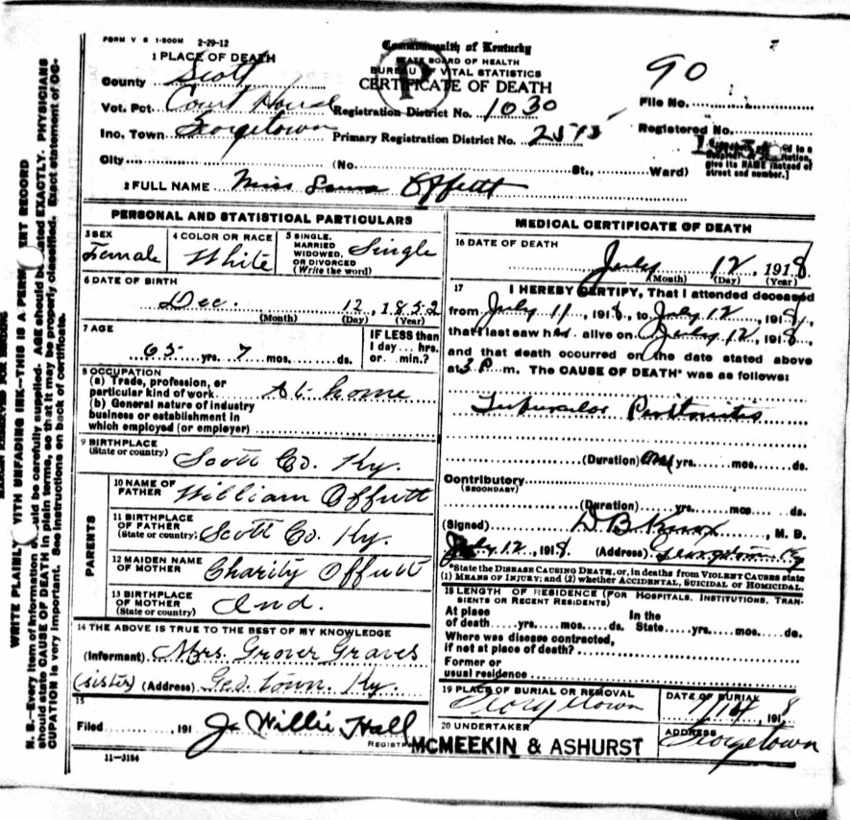 FORM V S 1-500M 2-29-12
Commonwealth of Kentucky
STATE BOARD OF HEALTH
BUREAU OF VITAL STATISTICS
CERTIFICATE OF DEATH
P
90
1 PLACE OF DEATH
County Scott
Vot. Pct. Court House Registration District No. 1030
File No.
Inc. Town Georgetown Primary Registration District No. 2575
Registered No.
City (No. St., Ward)
give its NAME instead of street and number.]
2 FULL NAME Miss Offutt
PERSONAL AND STATISTICAL PARTICULARS
3 SEX Female
4 COLOR OR RACE White
5 SINGLE, MARRIED WIDOWED, OR DIVORCED (Write the word) Single
6 DATE OF BIRTH
Dec. 12, 1852
(Month) (Day) (Year)
7 AGE
65 yrs. 7 mos. ds.
IF LESS than 1 day... hrs. or... min.?
8 OCCUPATION
(a) Trade, profession, or particular kind of work At home
(b) General nature of industry business or establishment in which employed (or employer)
9 BIRTHPLACE (State or country) Scott Co. Ky.
PARENTS
10 NAME OF FATHER William Offutt
11 BIRTHPLACE OF FATHER (State or country) Scott Co. Ky.
12 MAIDEN NAME OF MOTHER Charity Offutt
13 BIRTHPLACE OF MOTHER Ind.
14 THE ABOVE IS TRUE TO THE BEST OF MY KNOWLEDGE
(Informant) Mrs. Grover Graves
(sister) (Address) Geo. town. Ky.
15
Filed , 191 Jo Willie Hall
REGISTRAR
11-3184
MEDICAL CERTIFICATE OF DEATH
16 DATE OF DEATH
July 12, 1918
(Month) (Day) (Year)
17 I HEREBY CERTIFY, That I attended deceased
from July 11, 1918, to July 12, 1918,
that I last saw her alive on July 12, 1918,
and that death occurred on the date stated above
at 3 P m. The CAUSE OF DEATH* was as follows:
Tubercular Peritonitis
(Duration) yrs. mos. ds.
Contributory
(SECONDARY)
(Duration) yrs. mos. ds.
(Signed) D B Knox, M. D.
July 12, 1918 (Address) Georgetown Ky
*State the DISEASE CAUSING DEATH, or, in deaths from VIOLENT CAUSES state
(1) MEANS OF INJURY; and (2) whether ACCIDENTAL, SUICIDAL or HOMICIDAL.
18 LENGTH OF RESIDENCE (FOR HOSPITALS, INSTITUTIONS, TRANSIENTS OR RECENT RESIDENTS)
At place of death yrs. mos. ds. In the State yrs. mos. ds.
Where was disease contracted, if not at place of death?
Former or usual residence
19 PLACE OF BURIAL OR REMOVAL Georgetown
DATE OF BURIAL 7/14 1918
20 UNDERTAKER
MCMEEKIN & ASHURST
ADDRESS Georgetown
WRITE PLAINLY WITH UNFADING INK—THIS IS A PERMANENT RECORD
N. B.—Every item of information should be carefully supplied. AGE should be stated EXACTLY. PHYSICIANS
should state CAUSE OF DEATH in plain terms, so that it may be properly classified. Exact statement of OC-
CUPATION is very important. See instructions on back of certificate.